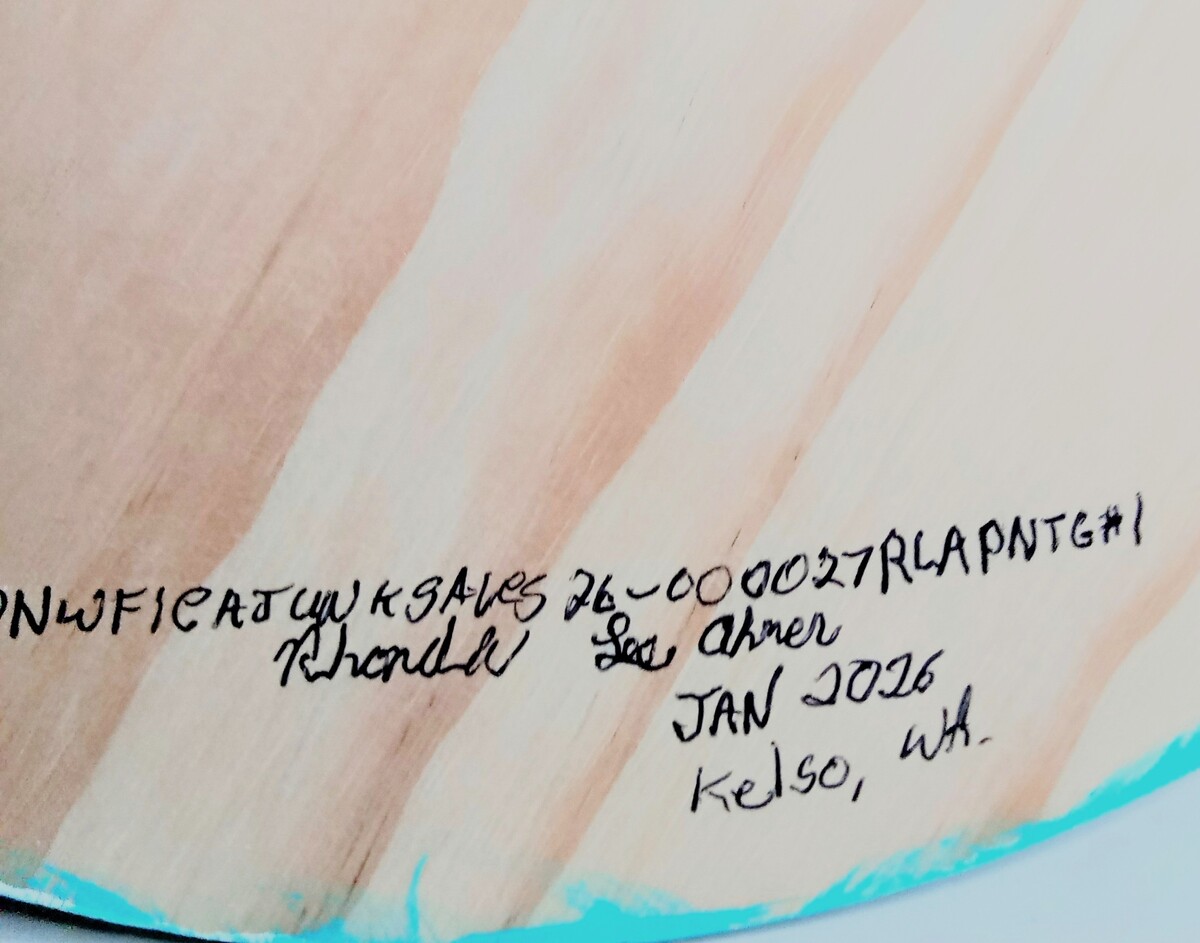 PNWFleAJUNKSALES 26-000027RLAPNTG#1
Rhonda Lee Ahmer
JAN 2026
Kelso, WA.